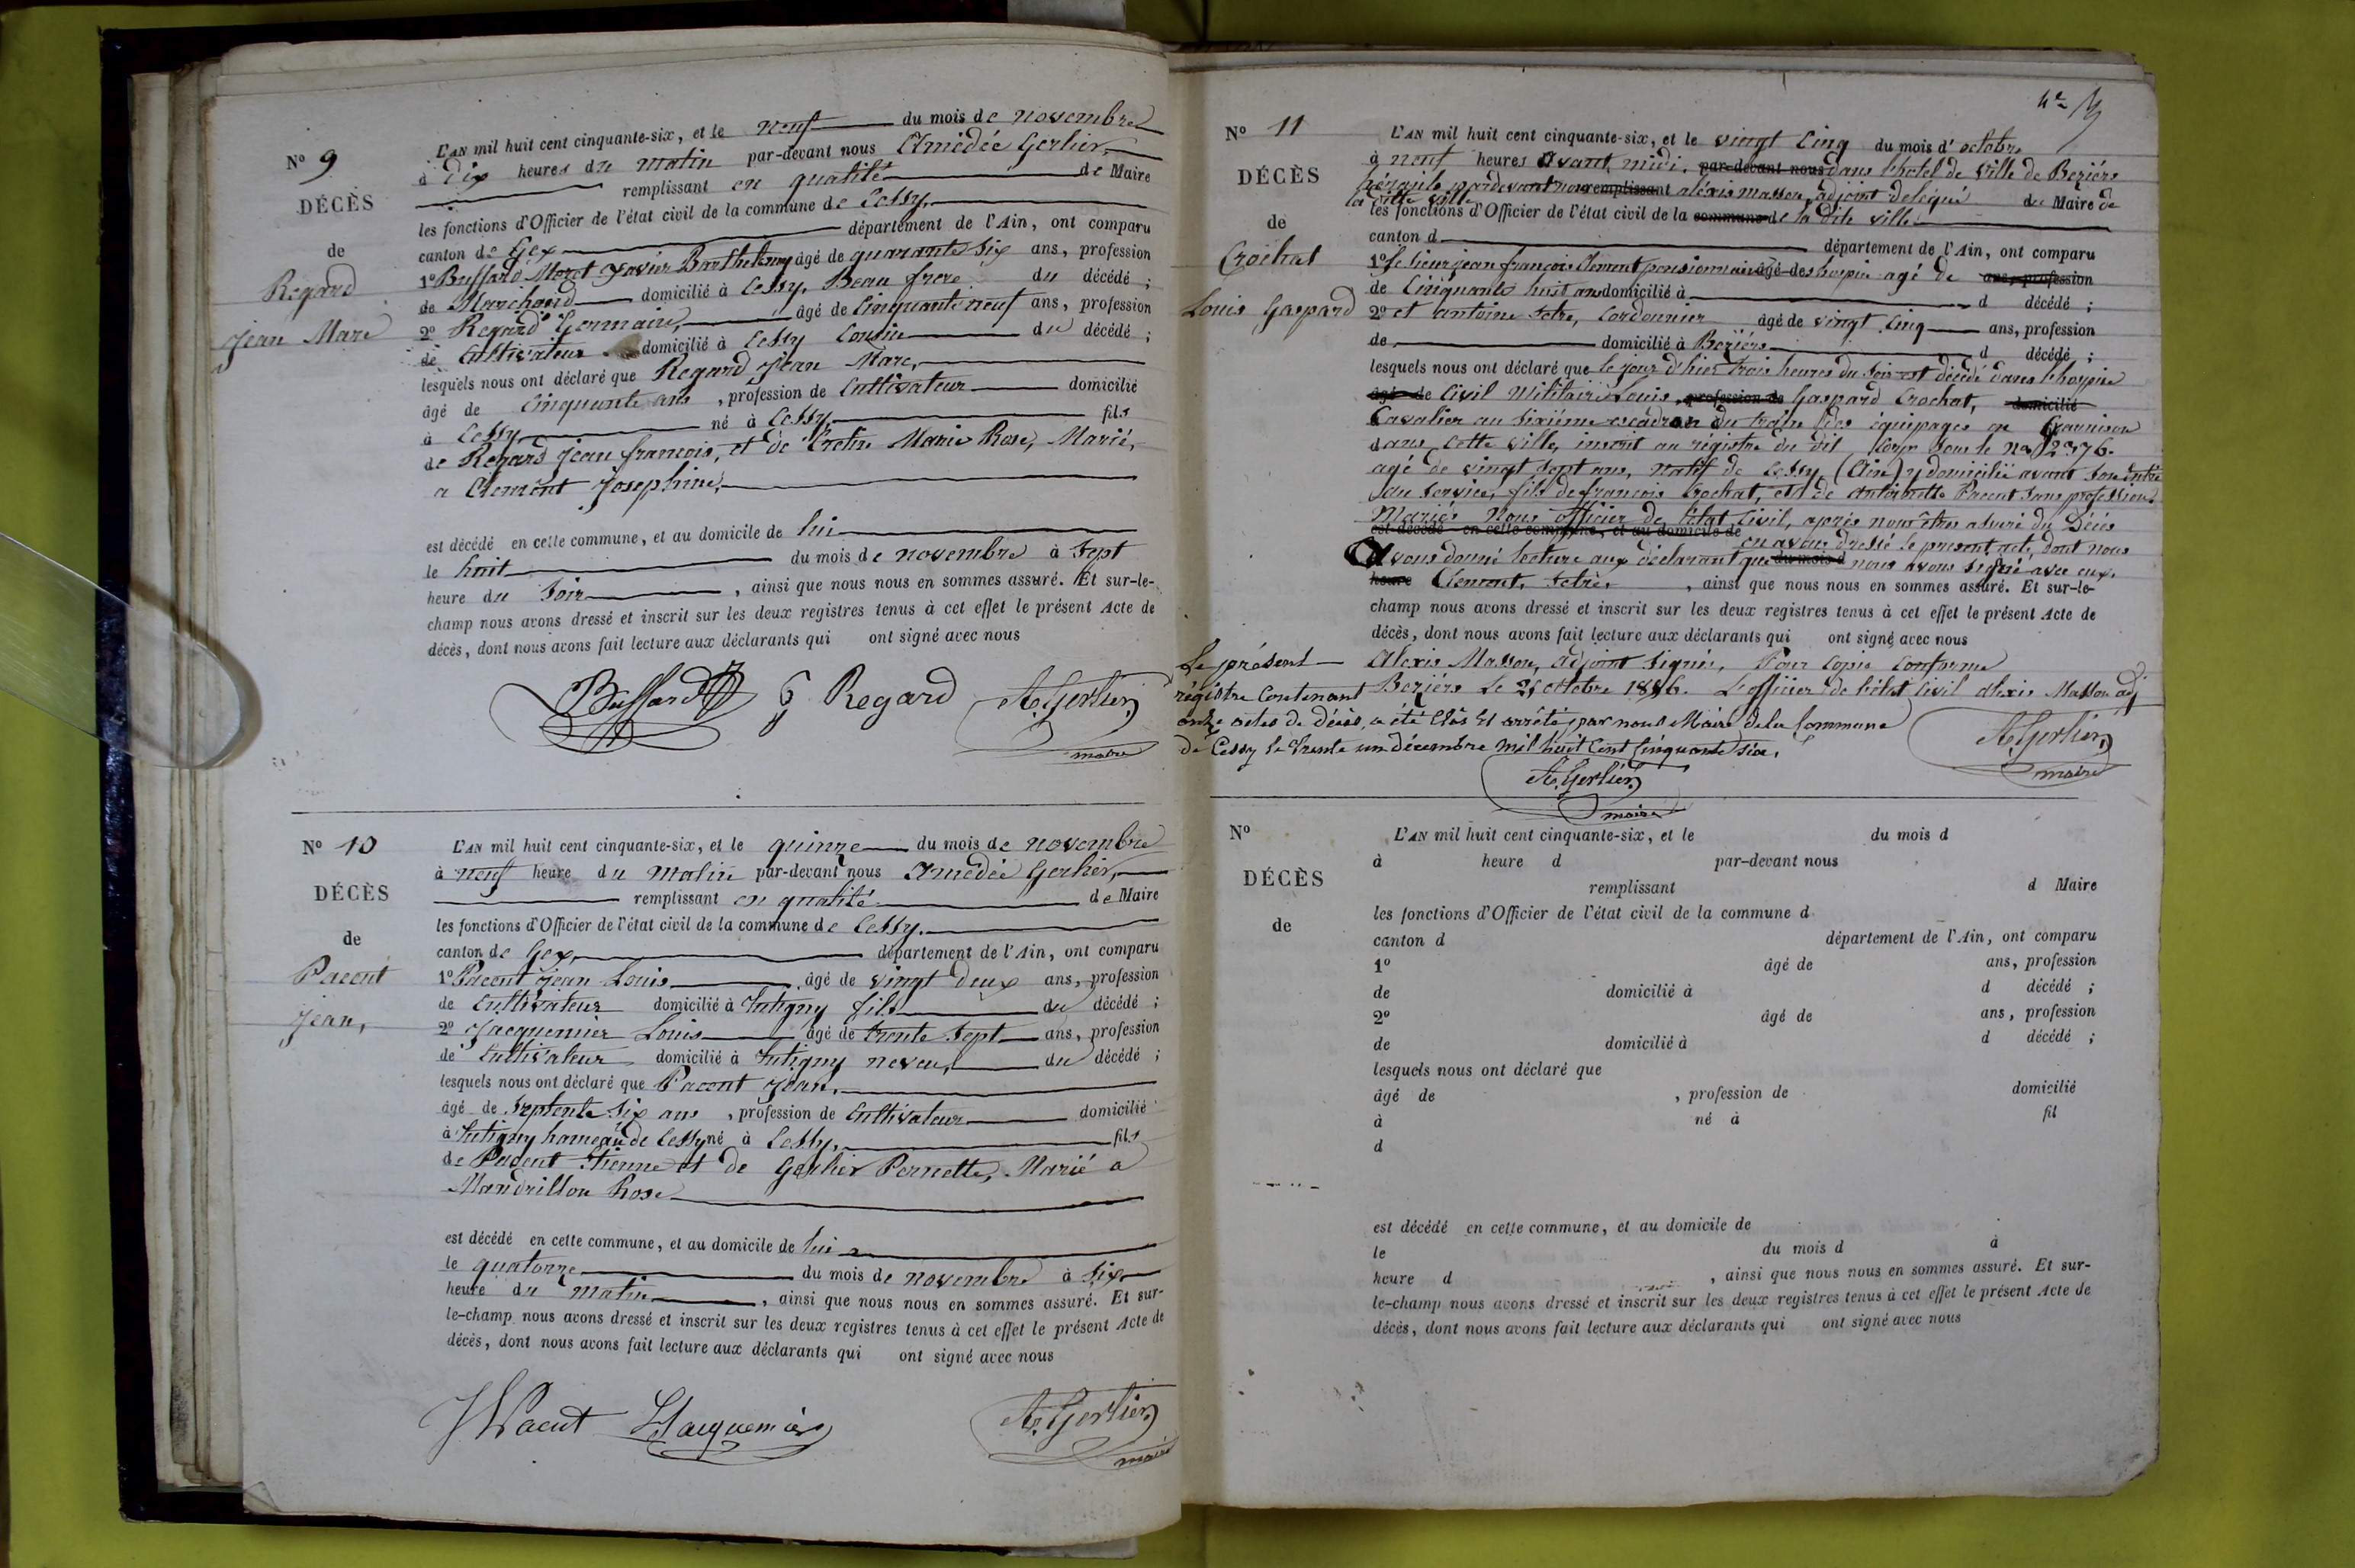 N° 9
DÉCÈS
de
Regard
Jean Marc
L'AN mil huit cent cinquante-six, et le neuf du mois de novembre
à dix heures du matin par-devant nous Amédée Gerlier,
remplissant en qualité de Maire
les fonctions d'Officier de l'état civil de la commune de Cessy,
canton de Gex département de l'Ain, ont comparu
1° Bussard Moret Xavier Barthelemy âgé de quarante six ans, profession
de Marchand domicilié à Cessy, Beau frere du décédé ;
2° Regard Germain, âgé de Cinquante neuf ans, profession
de Cultivateur domicilié à Cessy Cousin du décédé ;
lesquels nous ont déclaré que Regard Jean Marc,
âgé de Cinquante ans , profession de Cultivateur domicilié
à Cessy né à Cessy, fils
de Regard Jean francois, et de Cretin Marie Rose, Marié,
a Clement Josephine,
est décédé en cette commune, et au domicile de lui
le huit du mois de novembre à Sept
heure du Soir , ainsi que nous nous en sommes assuré. Et sur-le-
champ nous avons dressé et inscrit sur les deux registres tenus à cet effet le présent Acte de
décès, dont nous avons fait lecture aux déclarants qui ont signé avec nous
Bussard G Regard A. Gerlier
maire
N° 10
DÉCÈS
de
Pacent
Jean,
L'AN mil huit cent cinquante-six, et le quinze du mois de novembre
à neuf heure du matin par-devant nous Amédée Gerlier,
remplissant en qualité de Maire
les fonctions d'Officier de l'état civil de la commune de Cessy.
canton de Gex, département de l'Ain, ont comparu
1° Pacent Jean Louis âgé de vingt deux ans, profession
de Cultivateur domicilié à Tutigny fils du décédé ;
2° Jacquemier Louis âgé de trente Sept ans, profession
de Cultivateur domicilié à Tutigny neveu, du décédé ;
lesquels nous ont déclaré que Pacent Jean,
âgé de Septente Six ans , profession de Cultivateur domicilié
à Tutigny hameau de Cessy né à Cessy, fils
de Pacent Etienne et de Gerlier Pernette, Marié a
Mandrillon Rose
est décédé en cette commune, et au domicile de lui
le quatorze du mois de novembre à Six
heure du matin , ainsi que nous nous en sommes assuré. Et sur-
le-champ nous avons dressé et inscrit sur les deux registres tenus à cet effet le présent Acte de
décès, dont nous avons fait lecture aux déclarants qui ont signé avec nous
JL Pacent L Jacquemier A. Gerlier
maire
N° 11
DÉCÈS
de
Crochat
Louis Gaspard
L'AN mil huit cent cinquante-six, et le vingt Cinq du mois d'octobre
à neuf heures avant midi, par-devant nous dans l'hotel de ville de Beziérs
hérault pardevant nous remplissant aléxis masson, adjoint delegué du Maire de
la ville
les fonctions d'Officier de l'état civil de la commune de la dite ville
canton d département de l'Ain, ont comparu
1° le sieur jean françois Clement pensionnaire âgé de hospice agé de ans, profession
de Cinquante huit ans domicilié à d décédé ;
2° et antoine Febre, Cordonnier âgé de vingt Cinq ans, profession
de domicilié à Beziérs d décédé ;
lesquels nous ont déclaré que le jour d'hier trois heures du Soir est décédé dans l'hospice
âgé de Civil Militaire Louis, profession de Gaspard Crochat, domicilié
Cavalier au Sixiéme escadron du train des équipages en Garnison
dans cette ville, inscrit au régistre du dit Corps Sous le no 2376.
agé de vingt Sept ans, natif de Cessy (Ain) y domicilié avant Son entré
au Service, fils de françois Crochat, et de Antoinette Pacent Sans profession
Mariés Nous officier de l'état Civil, aprés nous être assuré du Décès
est décédé en cette commune, et au domicile de
en avons dressé le present acte, dont nous
Avons donné lecture aux déclarant que du mois d nous avons Signé avec eux.
heure Clement, Febre, , ainsi que nous nous en sommes assuré. Et sur-le-
champ nous avons dressé et inscrit sur les deux registres tenus à cet effet le présent Acte de
décès, dont nous avons fait lecture aux déclarants qui ont signé avec nous
Alexis Masson, adjoint Signés, Pour Copie Conforme
Beziérs le 25 octobre 1856. L'officier de l'état Civil Alexis Masson adj
Le présent
régistre Contenant
onze actes de décès, a été Clôs Et arrêté par nous Maire de la Commune
de Cessy le trente un décembre mil huit Cent Cinquante Six.
A. Gerlier
maire
A. Gerlier
maire
N°
DÉCÈS
de
L'AN mil huit cent cinquante-six, et le du mois d
à heure d par-devant nous
remplissant d Maire
les fonctions d'Officier de l'état civil de la commune d
canton d département de l'Ain, ont comparu
1° âgé de ans, profession
de domicilié à d décédé ;
2° âgé de ans, profession
de domicilié à d décédé ;
lesquels nous ont déclaré que
âgé de , profession de domicilié
à né à fil
d
est décédé en cette commune, et au domicile de
le du mois d à
heure d , ainsi que nous nous en sommes assuré. Et sur-
le-champ nous avons dressé et inscrit sur les deux registres tenus à cet effet le présent Acte de
décès, dont nous avons fait lecture aux déclarants qui ont signé avec nous